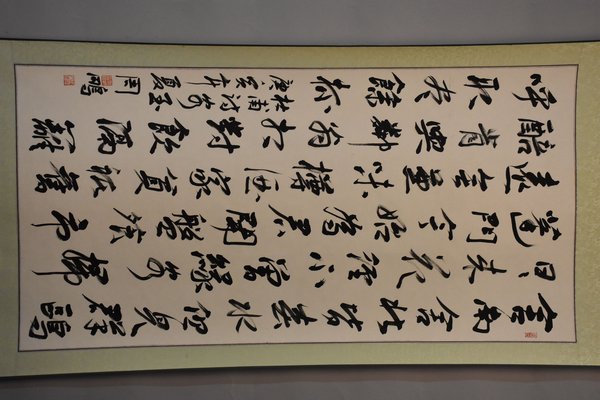 舍南舍北皆春水但見群鷗
日日來花徑不曾緣客掃
蓬門今始為君開盤飧市
遠無兼味樽酒家貧只舊
醅肯與鄰翁相對飲隔籬
呼取盡餘杯
杜甫詩客至
庚寅年夏
周鵬